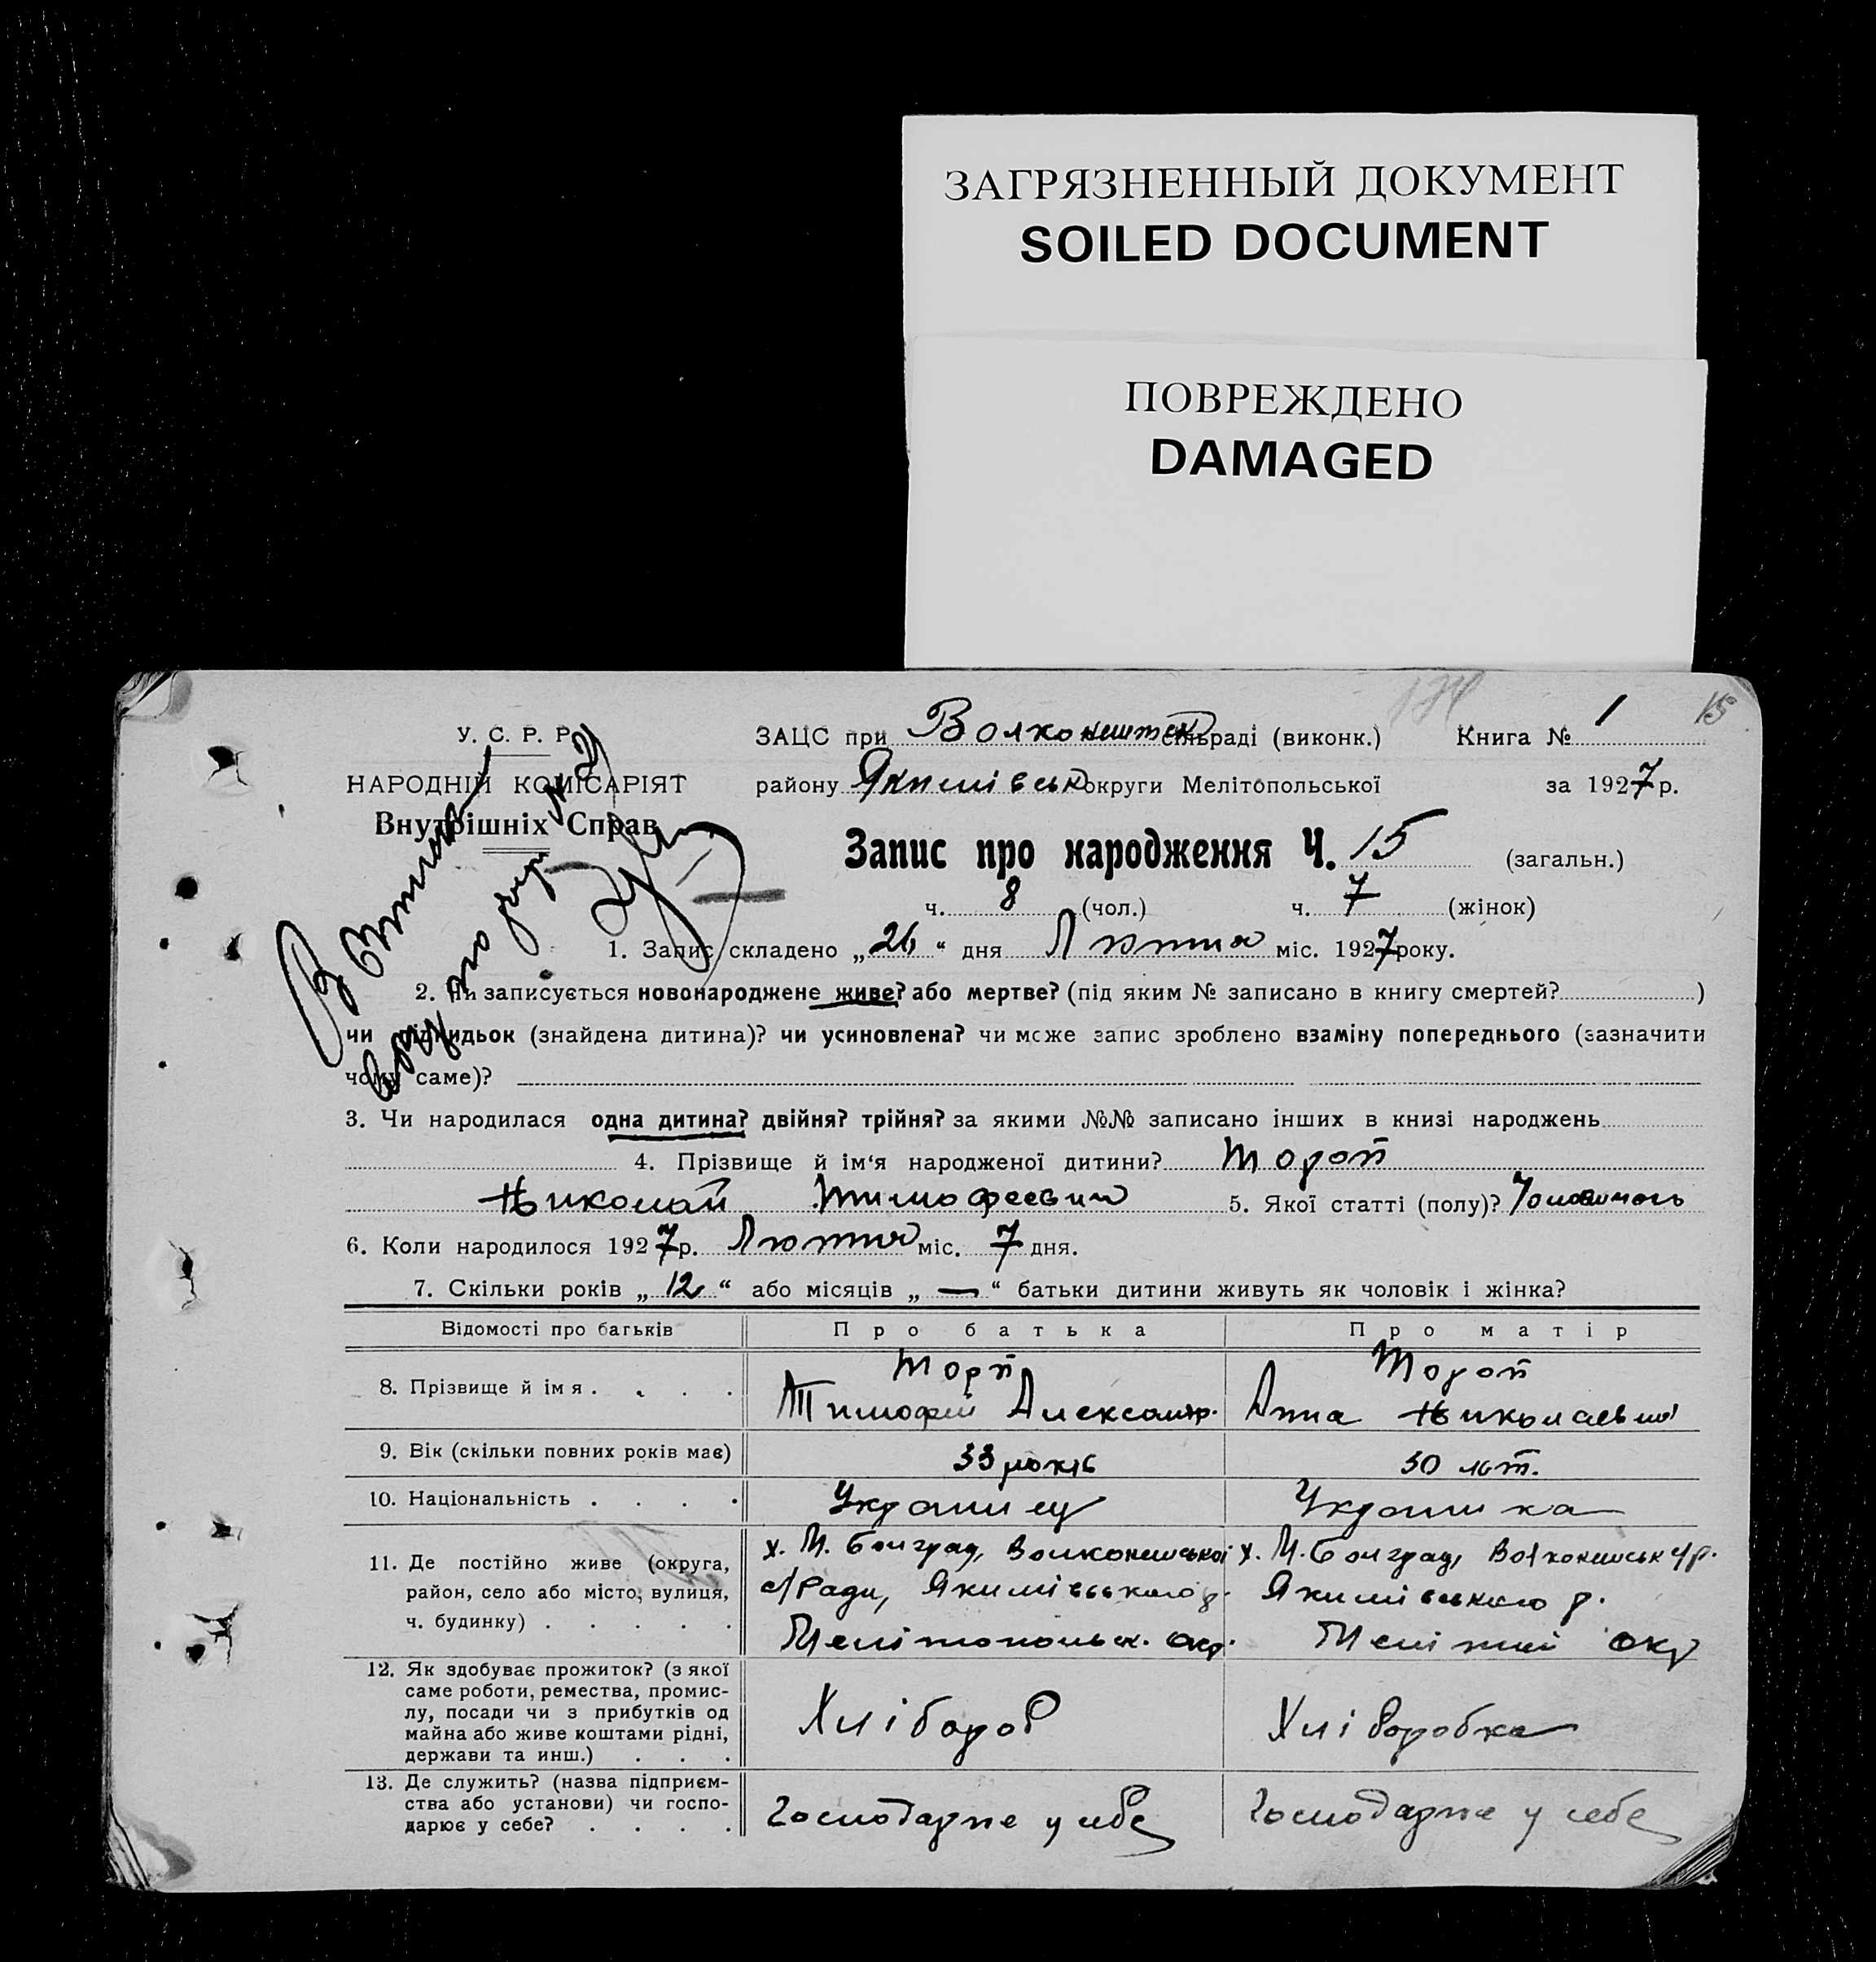 ЗАГРЯЗНЕННЫЙ ДОКУМЕНТ
SOILED DOCUMENT
ПОВРЕЖДЕНО
DAMAGED
15
У. С. Р. Р.
НАРОДНІЙ КОМІСАРІЯТ
Внутрішніх Справ
ЗАЦС при Волконештск сільраді (виконк.) Книга № 1
району Якимівськ округи Мелітопольської за 1927 р.
Запис про народження Ч. 15 (загальн.)
ч. 8 (чол.) ч. 7 (жінок)
1. Запис складено „26“ дня Лютня міс. 1927 року.
2. Чи записується новонароджене живе? або мертве? (під яким № записано в книгу смертей? )
чи підкидьок (знайдена дитина)? чи усиновлена? чи може запис зроблено взаміну попереднього (зазначити
чому саме)?
3. Чи народилася одна дитина? двійня? трійня? за якими №№ записано інших в книзі народжень
4. Прізвище й ім‘я народженої дитини? Тороп
Николай Тимофеевич 5. Якої статті (полу)?
6. Коли народилося 1927 р. Лютня міс. 7 дня.
7. Скільки років „12“ або місяців „—“ батьки дитини живуть як чоловік і жінка?
Відомості про батьків Про батька Про матір
8. Прізвище й імя . . . . Тороп
Тимофей Александр. Анна Николаевна
9. Вік (скільки повних років має) 33 років 30 лет.
10. Національність . . . . Украинец Украинка
11. Де постійно живе (округа, х. М. Болград, Волконешської х. М. Болград, Волконешськ с/р.
район, село або місто, вулиця, с/Ради, Якимівського р. Якимівського р.
ч. будинку) . . . . . Мелітопольск. окр. окр
12. Як здобуває прожиток? (з якої
саме роботи, ремества, промис-
лу, посади чи з прибутків од Хлібороб Хліборобка
майна або живе коштами рідні,
держави та инш.) . . .
13. Де служить? (назва підприєм-
ства або установи) чи госпо- Господарне у себе Господарне у себе
дарює у себе? . . . .